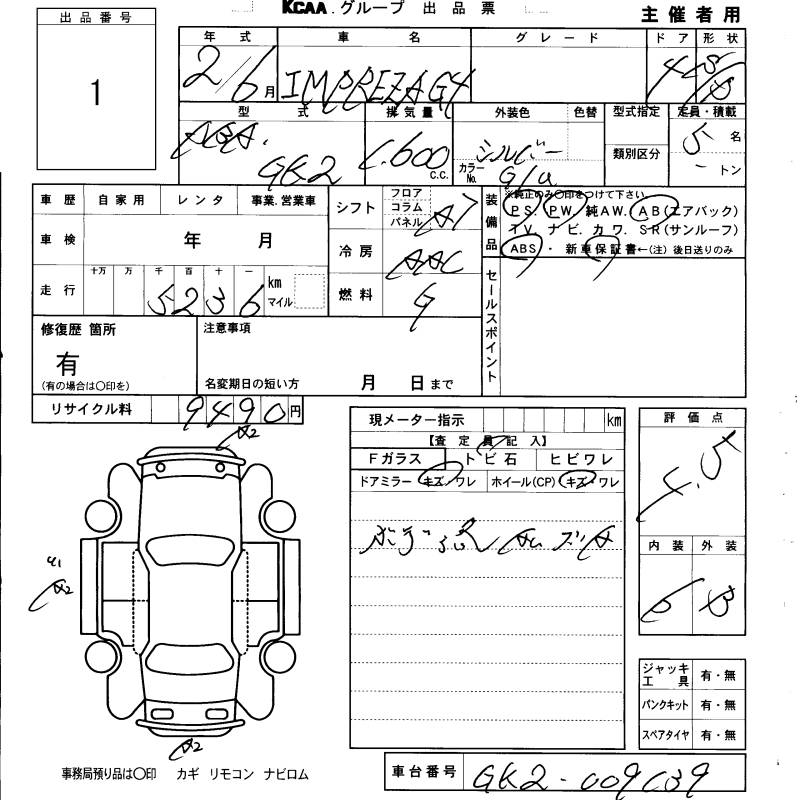 KCAA.グループ 出品票
主催者用
出品番号
1
年式 車名 グレード ドア 形状
2/6月 IMPREZA G4 4
型式 排気量 外装色 色替 型式指定 定員・積載
GK2 1,600 c.c. シルバー カラーNo. G1U 類別区分 5名 -トン
車歴 自家用 レンタ 事業.営業車
車検 年 月
走行 十万 万 千 百 十 一 km マイル
5236
シフト フロア コラム パネル A7
冷房 AAC
燃料 G
装備品 ※純正のみ〇印をつけて下さい
PS. PW. 純AW. AB(エアバック)
TV. ナビ. カワ. SR(サンルーフ)
ABS ・ 新車保証書←(注) 後日送りのみ
セールスポイント
修復歴 箇所
有
(有の場合は〇印を)
注意事項
名変期日の短い方 月 日まで
リサイクル料 9490円
現メーター指示 km
【査定員記入】
Fガラス トビ石 ヒビワレ
ドアミラー キズ・ワレ ホイール(CP) キズ・ワレ
評価点
4.5
内装 外装
B
A2
A2
A2
ジャッキ工具 有・無
パンクキット 有・無
スペアタイヤ 有・無
事務局預り品は〇印 カギ リモコン ナビロム
車台番号 GK2-009039